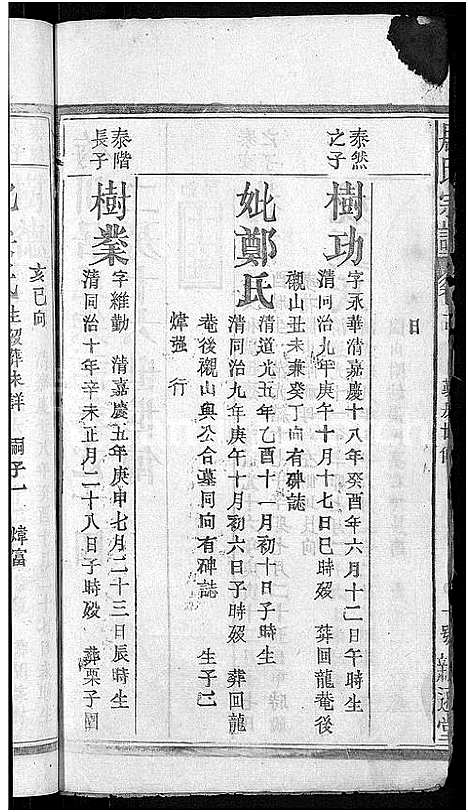 氏宗譜
泰然之子
樹功
字永華清嘉慶十八年癸酉年六月十二日午時生
清同治九年庚午十月十七日巳時歿 葬回龍菴後
觀山丑未兼癸丁向有碑誌
妣鄭氏
清道光五年乙酉十一月初十日子時生
清同治九年庚午十月初六日子時歿 葬回龍
菴後觀山與公合墓同向有碑誌 生子二
煒强 行
泰階長子
樹業
字維勤 清嘉慶五年庚申七月二十三日辰時生
清同治十年辛未正月二十八日子時歿 葬栗子園
亥巳向
生歿葬未詳 嗣子一 煒富